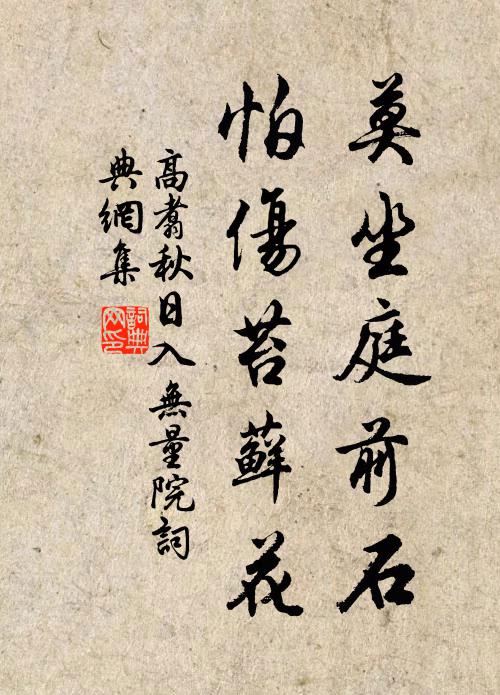 莫坐庭前石
怕傷苔蘚花
高翥秋日入無量院詞
典網集
詞典網印